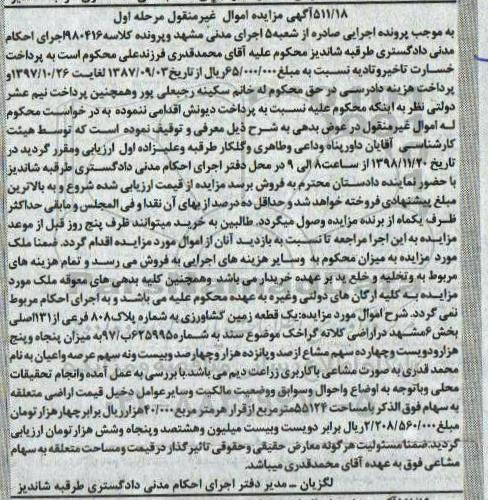 ۵۱۱/۱۸آگهی مزایده اموال غیرمنقول مرحله اول
به موجب پرونده اجرایی صادره از شعبه۵ اجرای مدنی مشهد وپرونده کلاسه۹۸۰۴۱۶اجرای احکام
مدنی دادگستری طرقبه شاندیز محکوم علیه آقای محمدقدری فرزندعلی محکوم است به پرداخت
خسارت تاخیروتادیه نسبت به مبلغ۶۵/۰۰۰/۰۰۰ریال از تاریخ۱۳۸۷/۰۹/۰۳ لغایت ۱۳۹۷/۱۰/۲۶و
پرداخت هزینه دادرسی در حق محکوم له خانم سکینه رجبعلی پور وهمچنین پرداخت نیم عشر
دولتی نظر به اینکه محکوم علیه نسبت به پرداخت دیونش اقدامی ننموده به در خواست محکوم
له اموال غیرمنقول در عوض بدهی به شرح ذیل معرفی و توقیف نموده است که توسط هیئت
کارشناسی آقایان داورپناه وداعی وطاهری وگلکار طرقبه وعلیزاده اول ارزیابی ومقرر گردید در
تاریخ ۱۳۹۸/۱۱/۲۰ از ساعت۸ الی ۹ در محل دفتر اجرای احکام مدنی دادگستری طرقبه شاندیز
با حضور نماینده دادستان محترم به فروش برسد مزایده از قیمت ارزیابی شده شروع و به بالاترین
مبلغ پیشنهادی فروخته خواهد شد و حداقل ده درصد از بهای آن نقدا و فی المجلس و مابقی حداکثر
ظرف یکماه از برنده مزایده وصول میگردد. طالبین به خرید میتوانند ظرف پنج روز قبل از موعد
مزایده به این اجرا مراجعه تا نسبت به بازدید آنان از اموال مورد مزایده اقدام گردد. ضمنا ملک
مورد مزایده به میزان محکوم به وسایر هزینه های اجرایی به فروش می رسد و تمام هزینه های
مربوط به وتخلیه و خلع ید بر عهده خریدار می باشد وهمچنین کلیه بدهی های معوقه ملک مورد
مزایده به کلیه ارگان های دولتی وغیره به عهده محکوم علیه می باشد و به اجرای احکام مربوط
نمی گردد. شرح اموال مورد مزایده:یک قطعه زمین کشاورزی به شماره پلاک۸۰۸ فرعی از۱۳۱اصلی
بخش۶مشهد دراراضی کلاته گراخک موضوع سند به شماره۶۲۵۹۹۵ب/۹۷به میزان پنجاه وپنج
هزارودویست وچهارده سهم مشاع ازصد وپانزده هزار وچهارصد وبیست ونه سهم عرصه واعیان به نام
محمد قدری به صورت مشاعی باکاربری زراعت دیم می باشد.با بررسی به عمل آمده وانجام تحقیقات
محلی وباتوجه به اوضاع واحوال وسوابق ووضعیت مالکیت وسایرعوامل دخیل قیمت اراضی متعلقه
به سهام فوق الذکر بامساحت ۵۵۲۱۴مترمربع ازقرار هرمتر مربع۴۰/۰۰۰هزارریال برابرچهارهزارتومان
مبلغ۲/۲۰۸/۵۶۰/۰۰۰ریال برابر دویست وبیست میلیون وهشتصد وپنجاه وشش هزارتومان ارزیابی
گردید.ضمنا مسئولیت هرگونه معارض حقیقی وحقوقی تاثیرگذار درقیمت ومساحت متعلقه به سهام
مشاعی فوق به عهده آقای محمدقدری میباشد.
لگزیان - مدیر دفتر اجرای احکام مدنی دادگستری طرقبه شاندیز